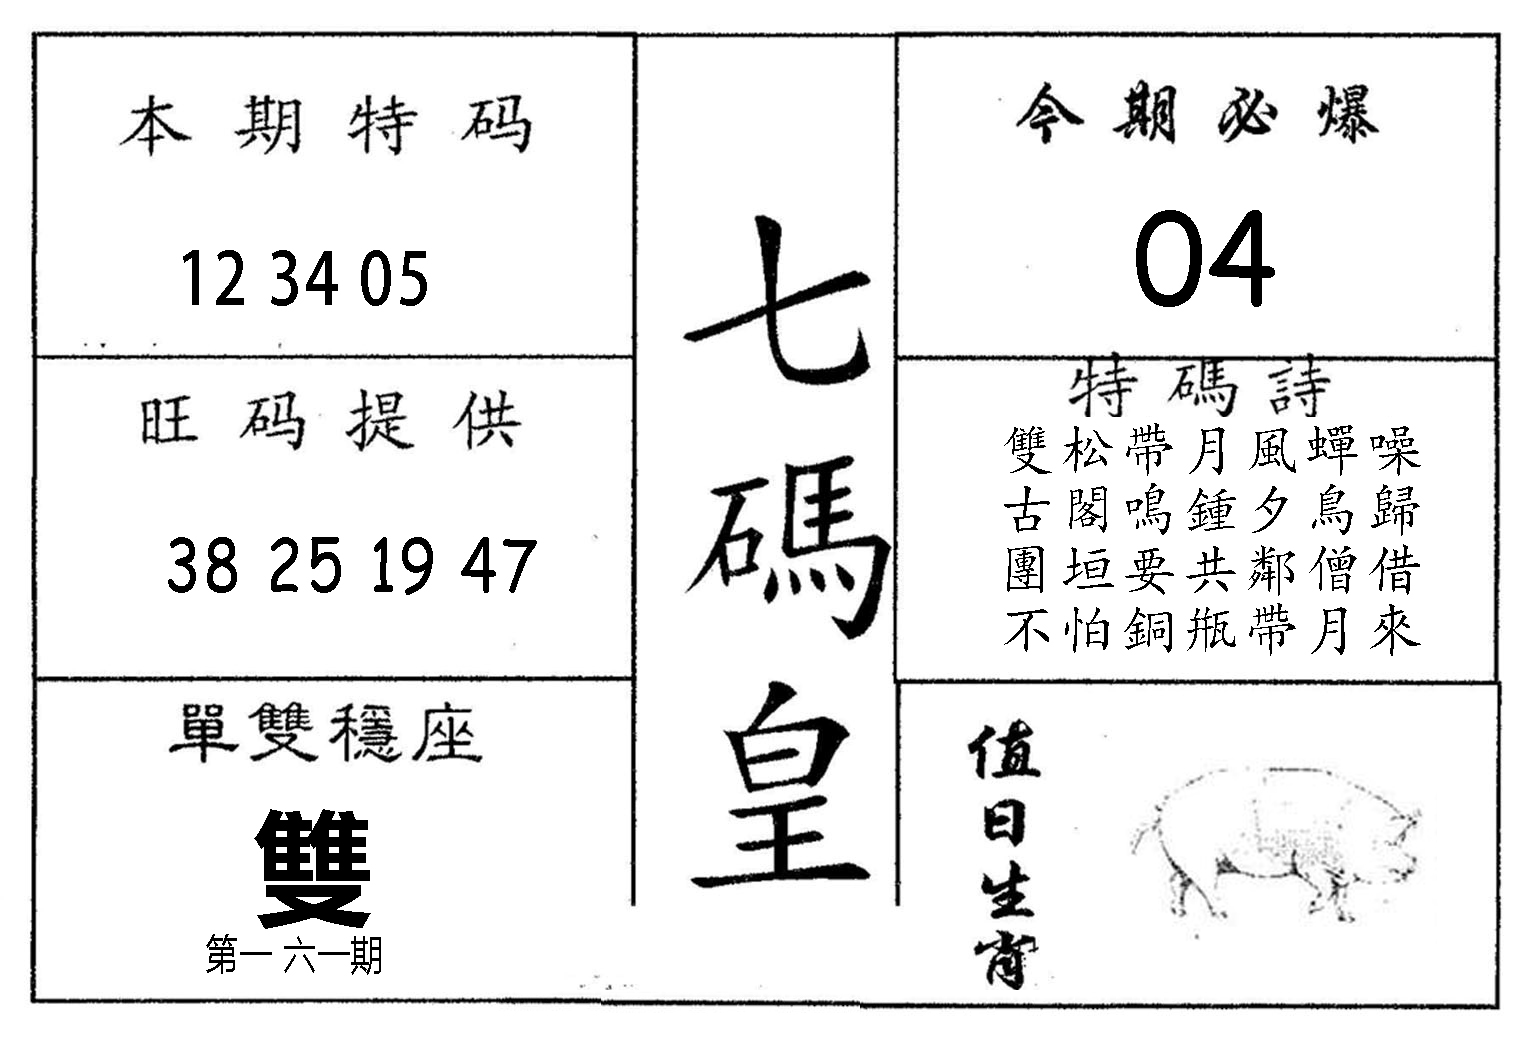 本期特码
12 34 05
旺码提供
38 25 19 47
單雙穩座
雙
第一六一期
七碼皇
今期必爆
04
特碼詩
雙松帶月風蟬噪
古閣鳴鍾夕鳥歸
團垣要共鄰僧借
不怕銅瓶帶月來
值日生肖